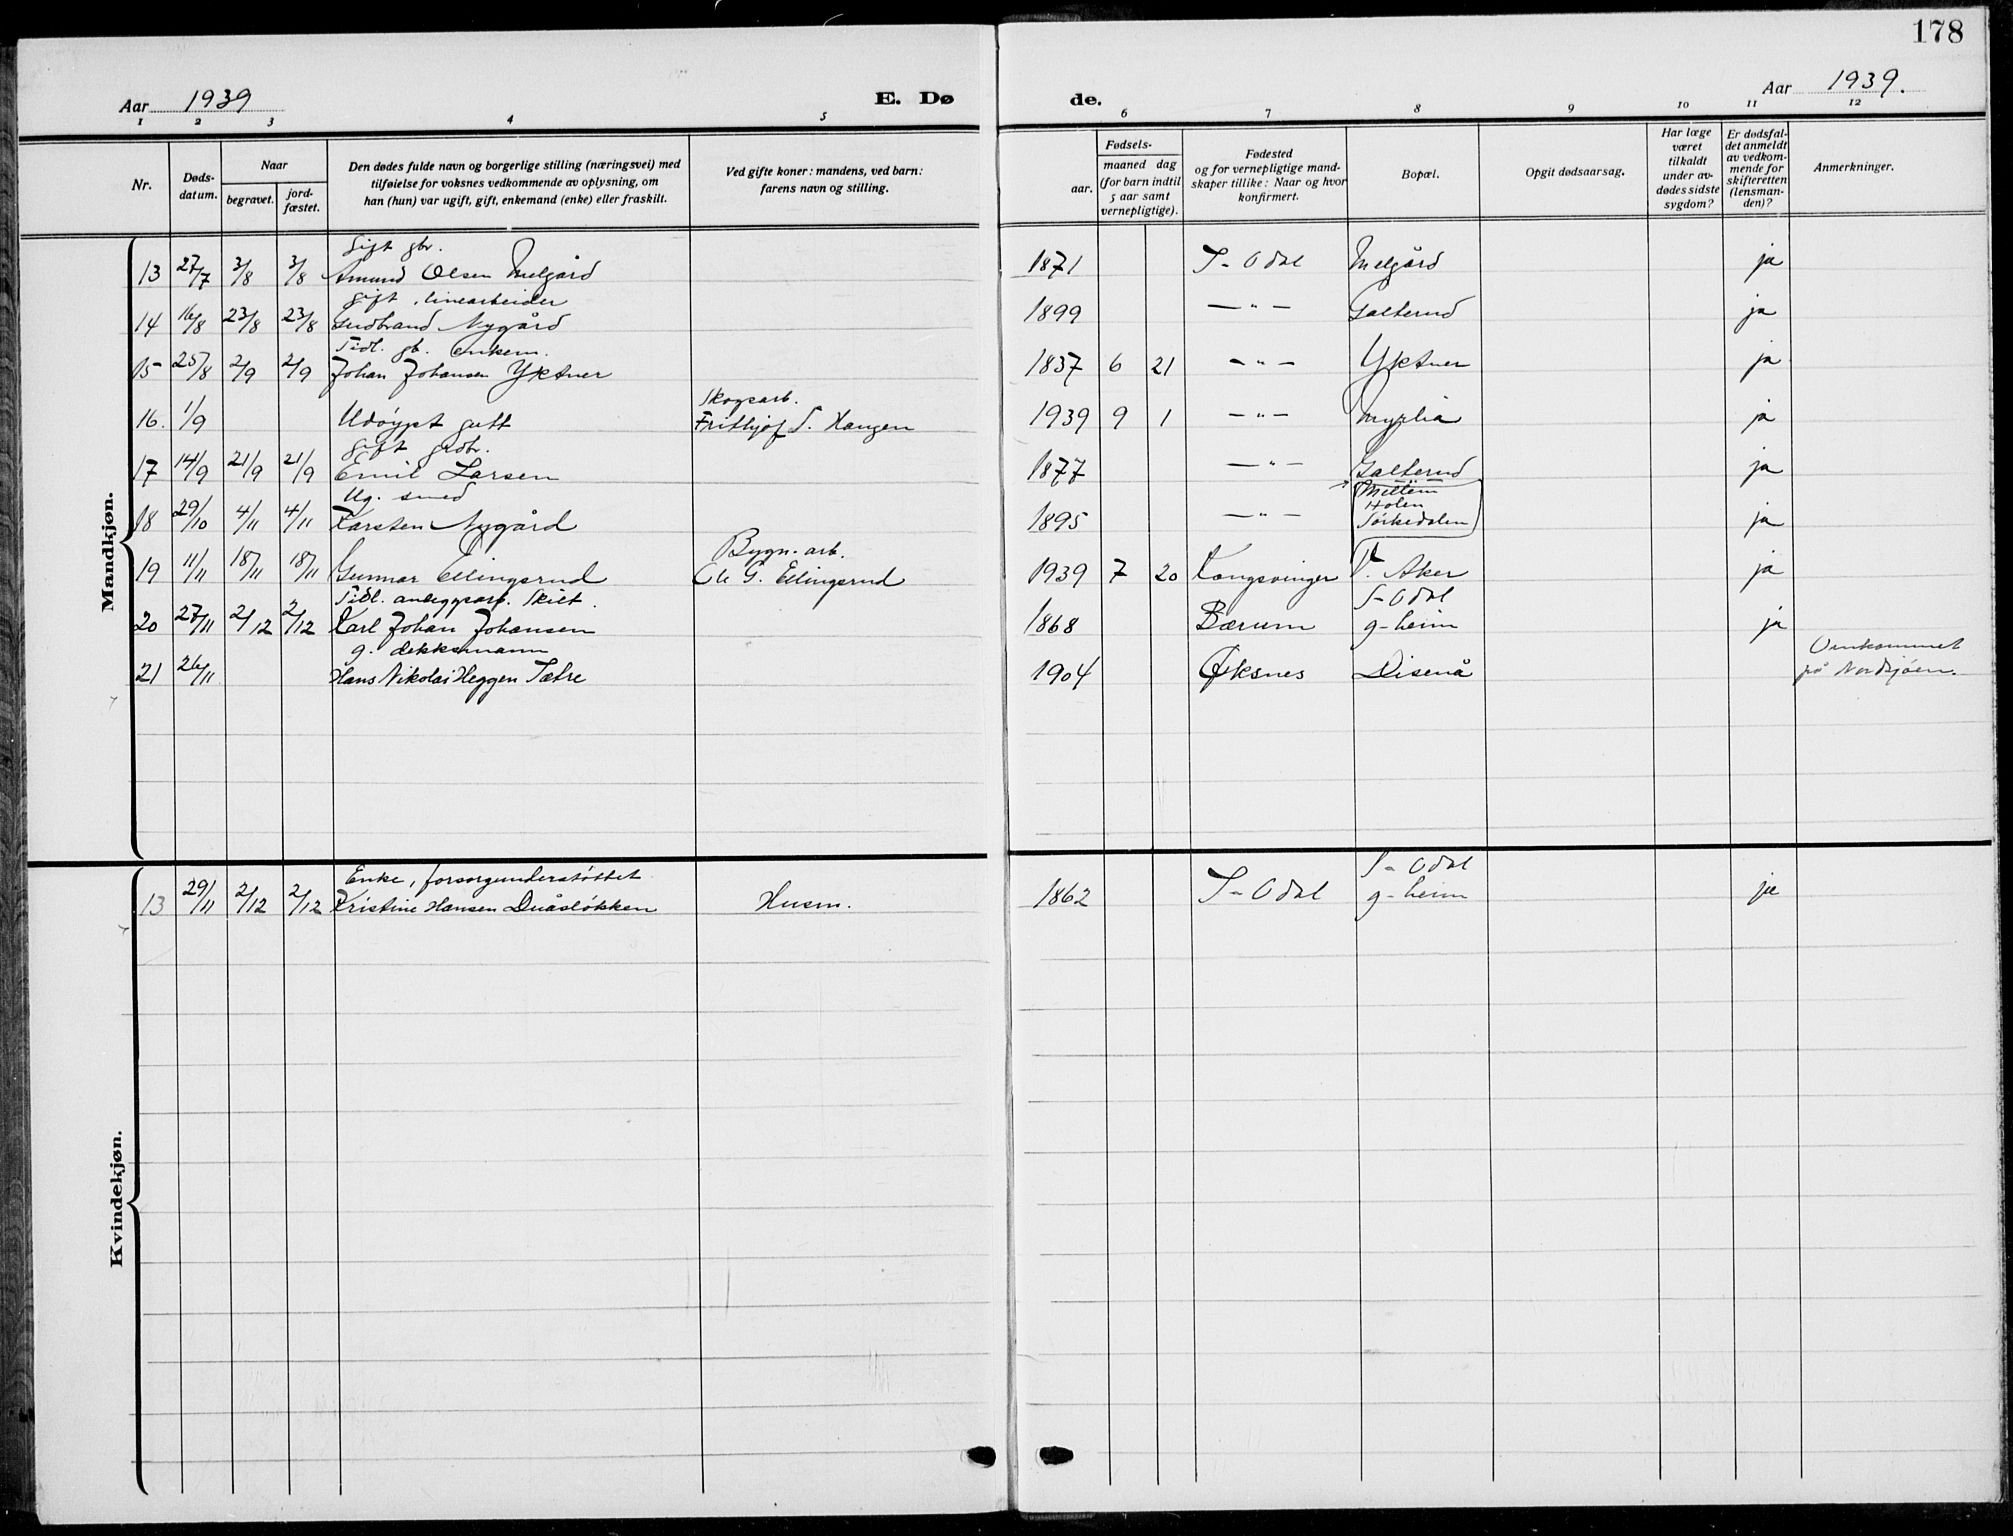 178
Aar 1939
E. Dø
de.
Aar 1939.
1 2 3 4 5 6 7 8 9 10 11 12
Nr.
Døds-
datum.
Naar
begravet.
jord-
fæstet.
Den dødes fulde navn og borgerlige stilling (næringsvei) med
tilføielse for voksnes vedkommende av oplysning, om
han (hun) var ugift, gift, enkemand (enke) eller fraskilt.
Ved gifte koner: mandens, ved barn:
farens navn og stilling.
Fødsels-
aar.
maaned dag
(for barn indtil
5 aar samt
vernepligtige).
Fødested
og for vernepligtige mand-
skaper tillike: Naar og hvor
konfirmert.
Bopæl.
Opgit dødsaarsag.
Har læge
været
tilkaldt
under av-
dødes sidste
sygdom?
Er dødsfal-
det anmeldt
av vedkom-
mende for
skifteretten
(lensman-
den)?
Anmerkninger.
Mandkjøn.
gift gbr.
13 27/7 3/8 3/8 Amund Olsen Melgård 1871 S-Odal Melgård ja
gift, linearbeider
14 16/8 23/8 23/8 Gudbrand Nygård 1899 — " — Galterud ja
Tidl. gb. enkem.
15 25/8 2/9 2/9 Johan Johansen Yktner 1837 6 21 — " — Yktner ja
Skogsarb.
16. 1/9 Udøypt gutt Frithjof S. Haugen 1939 9 1 — " — Myrlia ja
gift grdbr.
17 14/9 21/9 21/9 Emil Larsen 1877 — " — Galterud ja
Ug. smed
Mellem
Holen
18 29/10 4/11 4/11 Karsten Nygård 1895 — " — Sørkedalen ja
Bygn. arb.
19 11/11 18/11 18/11 Gunnar Ellingsrud Ole G. Ellingsrud 1939 7 20 Kongsvinger V. Aker ja
Tidl. anleggsarb. Skilt. S-Odal
20 27/11 2/12 2/12 Karl Johan Johansen 1868 Bærum g-heim ja
g. dekksmann Omkommet
21 26/11 Hans Nikolai Heggen Sætre 1904 Øksnes Disenå på Nordsjøen.
Kvindekjøn.
Enke, forsorgunderstøttet S-Odal
13 29/11 2/12 2/12 Kristine Hansen Duåsløkken Husm. 1862 S-Odal g-heim ja